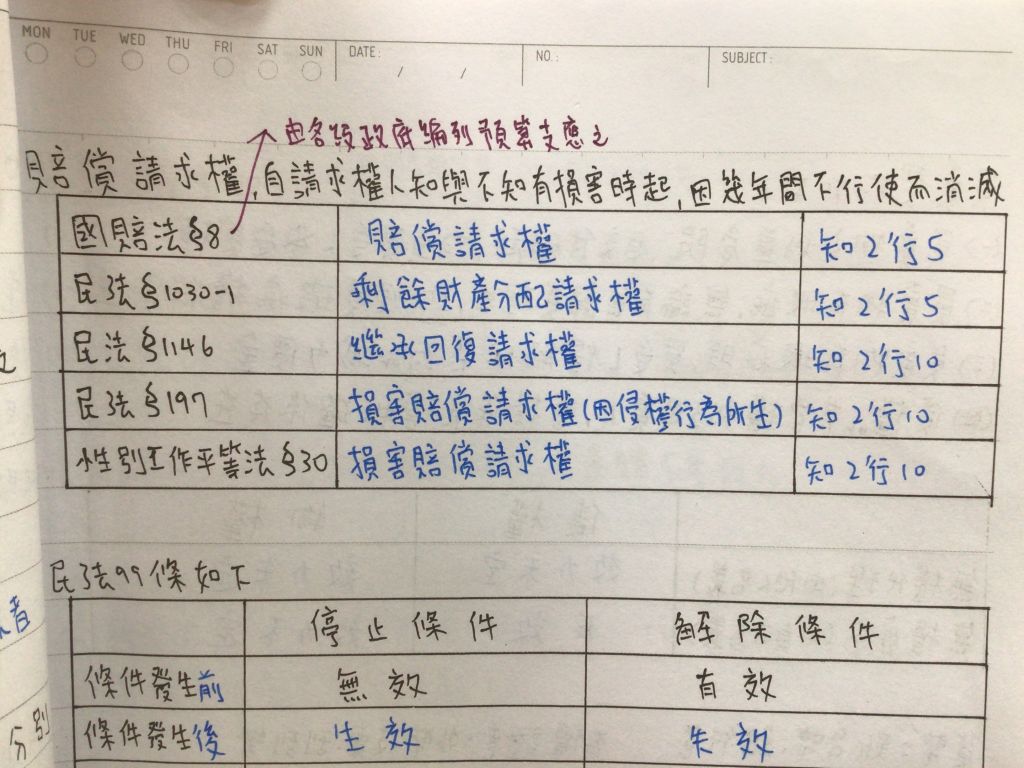 MON TUE WED THU FRI SAT SUN DATE: / / NO.: SUBJECT:
由各級政府編列預算支應之
賠償請求權,自請求權人知與不知有損害時起,因幾年間不行使而消滅
國賠法§8 賠償請求權 知2行5
民法§1030-1 剩餘財產分配請求權 知2行5
民法§1146 繼承回復請求權 知2行10
民法§197 損害賠償請求權(因侵權行為所生) 知2行10
性別工作平等法§30 損害賠償請求權 知2行10
民法99條如下
停止條件 解除條件
條件發生前 無效 有效
條件發生後 生效 失效
分別